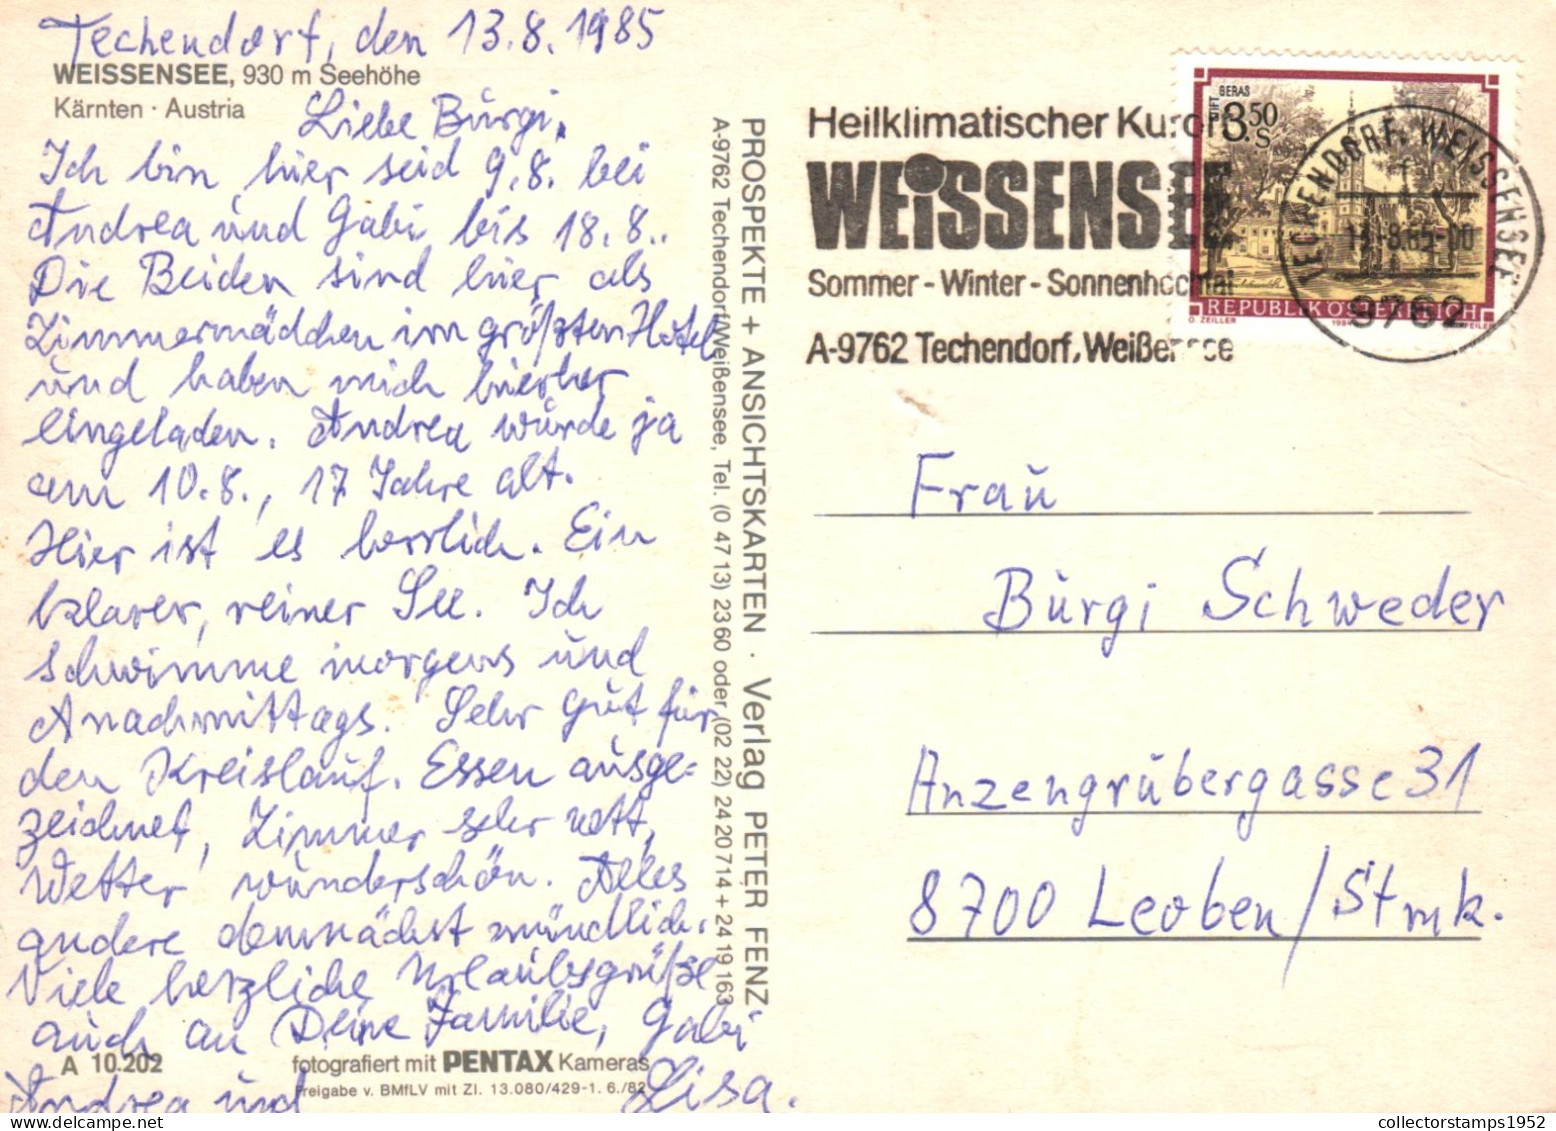 Techendorf, den 13.8.1985
WEISSENSEE, 930 m Seehöhe
Kärnten · Austria
Liebe Bürgi,
Ich bin hier seid 9.8. bei
Andrea und Gabi bis 18.8..
Die Beiden sind hier als
Zimmermädchen im größten Hotel
und haben mich hierher
eingeladen. Andrea wurde ja
am 10.8., 17 Jahre alt.
Hier ist es herrlich. Ein
klarer, reiner See. Ich
schwimme morgens und
Anachmittags. Sehr gut für
den Kreislauf. Essen ausge=
zeichnet, Zimmer sehr nett,
Wetter wunderschön. Alles
andere demnächst mündlich.
Viele herzliche Urlaubsgrüße
auch an Deine Familie, Gabi
Andrea und Lisa.
A 10.202
fotografiert mit PENTAX Kameras
Freigabe v. BMfLV mit Zl. 13.080/429-1.6./82
PROSPEKTE + ANSICHTSKARTEN · Verlag PETER FENZ
A-9762 Techendorf/Weißensee, Tel. (0 47 13) 23 60 oder (02 22) 24 20 714 + 24 19 163
Heilklimatischer Kurort
WEISSENSEE
Sommer - Winter - Sonnenhochtal
A-9762 Techendorf, Weißensee
STIFT GERAS
3.50
S
REPUBLIK ÖSTERREICH
O. ZEILLER 1984
TECHENDORF, WEISSENSEE
13.-8.85-00
9762
Frau
Bürgi Schweder
Anzengrubergasse 31
8700 Leoben/Stmk.
collectorstamps1952